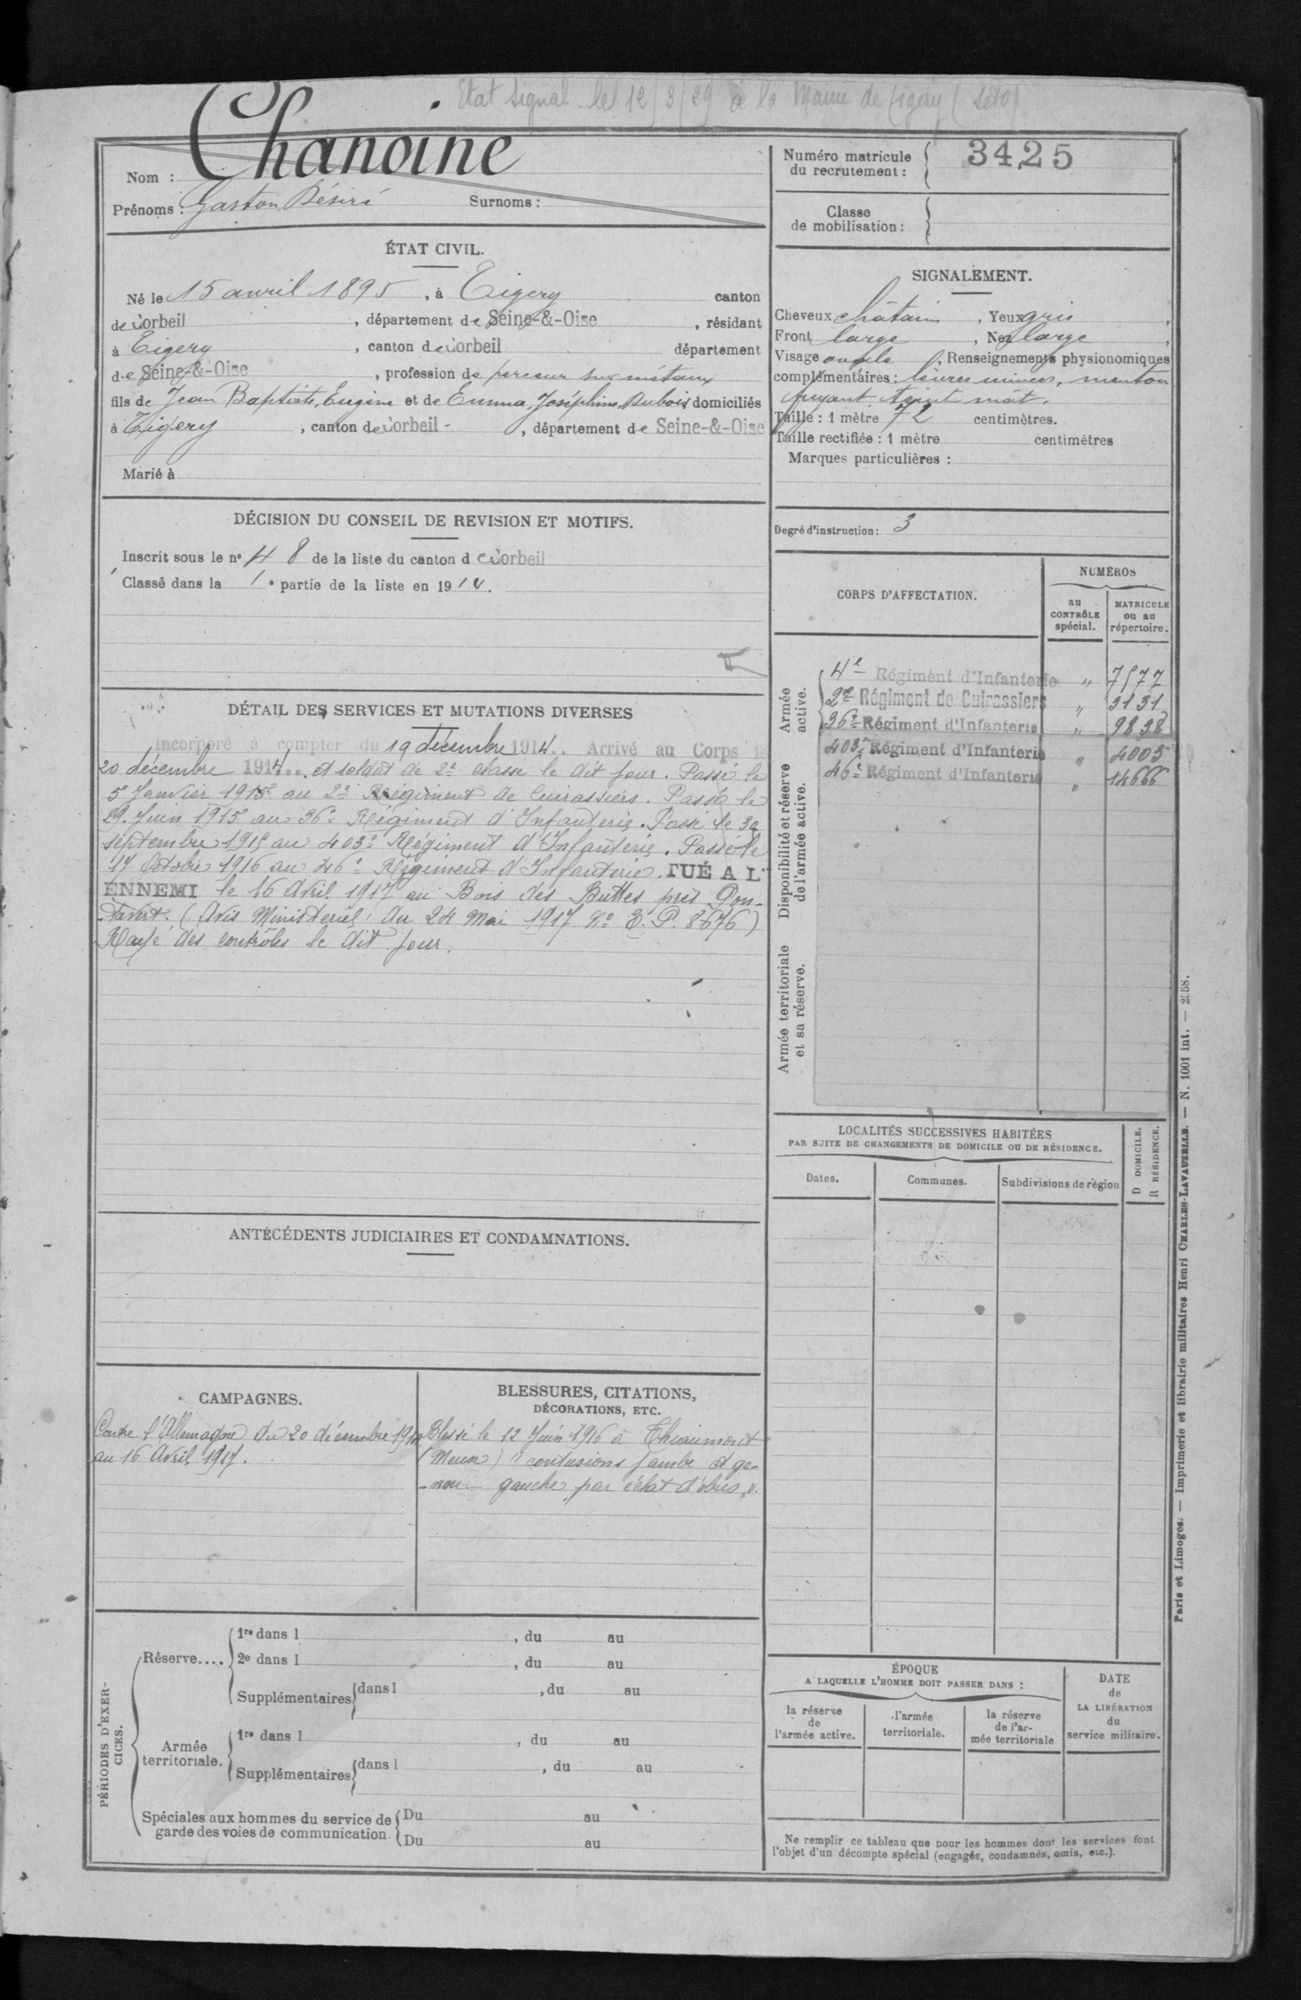 Etat signal. le 12/3/29 à la Mairie de Tigery (S et O)
Chanoine
Nom :
Prénoms : Gaston Désiré Surnoms :
ÉTAT CIVIL.
Né le 15 avril 1895, à Tigery canton
de Corbeil, département de Seine-&-Oise, résidant
à Tigery, canton de Corbeil département
de Seine-&-Oise, profession de perceur sur métaux
fils de Jean Baptiste, Eugène et de Emma, Joséphine, Dubois domiciliés
à Tigery, canton de Corbeil -, département de Seine-&-Oise
Marié à
DÉCISION DU CONSEIL DE REVISION ET MOTIFS.
Inscrit sous le n° 48 de la liste du canton d e Corbeil
Classé dans la 1e partie de la liste en 1914.
DÉTAIL DES SERVICES ET MUTATIONS DIVERSES
Incorporé à compter du 19 décembre 1914.. Arrivé au Corps le
20 décembre 1914... et soldat de 2e classe le dit jour. Passé le
5 Janvier 1915 au 2e Régiment de Cuirassiers. Passé le
29 Juin 1915 au 36e Régiment d'Infanterie. Passé le 30
septembre 1915 au 403e Régiment d'Infanterie. Passé le
17 Octobre 1916 au 46e Régiment d'Infanterie. TUÉ A L'
ENNEMI le 16 Avril 1917 au Bois des Buttes près Pon-
tavert. (Avis Ministériel du 24 Mai 1917 No E. P. 8676)
Rayé des contrôles le dit jour.
ANTÉCÉDENTS JUDICIAIRES ET CONDAMNATIONS.
CAMPAGNES.
Contre l'Allemagne du 20 décembre 1914
au 16 Avril 1917.
BLESSURES, CITATIONS,
DÉCORATIONS, ETC.
Blessé le 12 Juin 1916 à Thiaumont
(Meuse) "contusions jambe et ge-
-nou gauche par éclat d'obus."
PÉRIODES D'EXER-
CICES.
Réserve....
1re dans l , du au
2e dans l , du au
Supplémentaires dans l , du au
Armée
territoriale.
1re dans l , du au
Supplémentaires dans l , du au
Spéciales aux hommes du service de
garde des voies de communication.
Du au
Du au
Numéro matricule
du recrutement : 3425
Classe
de mobilisation :
SIGNALEMENT.
Cheveux châtain, Yeux gris,
Front large, Nez large,
Visage ovale, Renseignements physionomiques
complémentaires : lèvres minces, menton
fuyant, teint mât.
Taille : 1 mètre 72 centimètres.
Taille rectifiée : 1 mètre centimètres
Marques particulières :
Degré d'instruction : 3
CORPS D'AFFECTATION.
NUMÉROS
au
CONTRÔLE
spécial.
MATRICULE
ou au
répertoire.
Armée
active.
4e Régiment d'Infanterie " 7577
2e Régiment de Cuirassiers " 3131
36e Régiment d'Infanterie " 9838
403e Régiment d'Infanterie " 4005
46e Régiment d'Infanterie 14666
Disponibilité et réserve
de l'armée active.
Armée territoriale
et sa réserve.
LOCALITÉS SUCCESSIVES HABITÉES
PAR SUITE DE CHANGEMENTS DE DOMICILE OU DE RÉSIDENCE.
Dates.
Communes.
Subdivisions de région
D DOMICILE.
R RÉSIDENCE.
ÉPOQUE
A LAQUELLE L'HOMME DOIT PASSER DANS :
la réserve
de
l'armée active.
l'armée
territoriale.
la réserve
de l'ar-
mée territoriale
DATE
de
LA LIBÉRATION
du
service militaire.
Ne remplir ce tableau que pour les hommes dont les services font
l'objet d'un décompte spécial (engagés, condamnés, omis, etc.).
Paris et Limoges. — Imprimerie et librairie militaires Henri CHARLES-LAVAUZELLE. — N. 1001 int. — 2558.